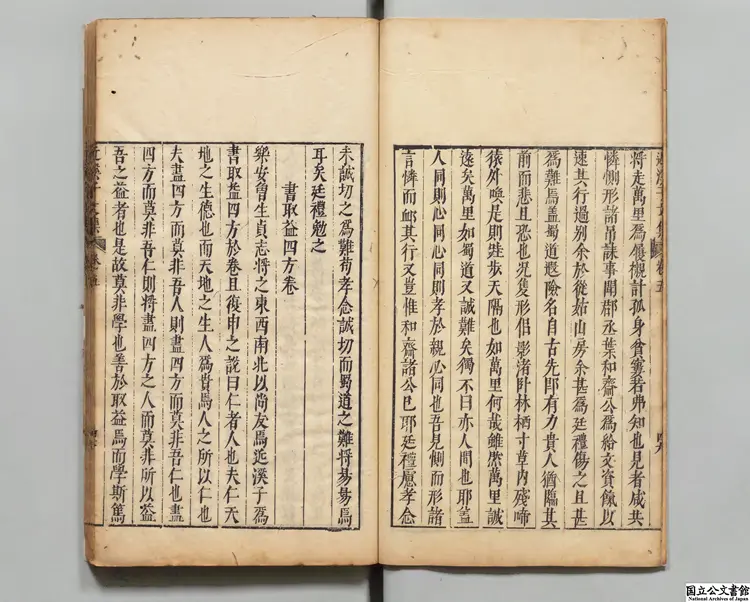 將走萬里爲屨櫬計孤身貧窶若弗知也見者咸共
憐惻形諸吊誄事聞郡丞葉和齋公爲給文資餼以
速其行過别余於從姑山房余甚爲廷禮傷之且甚
爲難焉蓋蜀道遐險名自古先即有力貴人猶臨其
前而悲且恐也况隻形侣影渚卧林栖寸草内殘啼
猿外喚是則跬步天隔也如萬里何哉雖然萬里誠
遠矣萬里如蜀道又誠難矣獨不曰亦人間也耶蓋
人同則心同心同則孝於親心同也吾見惻而形諸
言憐而䘏其行又豈惟和齋諸公已耶廷禮慮孝念
未誠切之爲難苟孝念誠切而蜀道之難將易易焉
耳矣廷禮勉之
書取益四方卷
樂安曾生貞志將之東西南北以尚友焉近溪子爲
書取益四方於卷且復申之說曰仁者人也夫仁天
地之生德也而天地之生人爲貴焉人之所以仁也
夫盡四方而莫非吾人則盡四方而莫非吾仁也盡
四方而莫非吾仁則將盡四方之人而莫非所以益
吾之益者也是故莫非學也善於取益焉而學斯篤
卷五
国立公文書館
National Archives of Japan